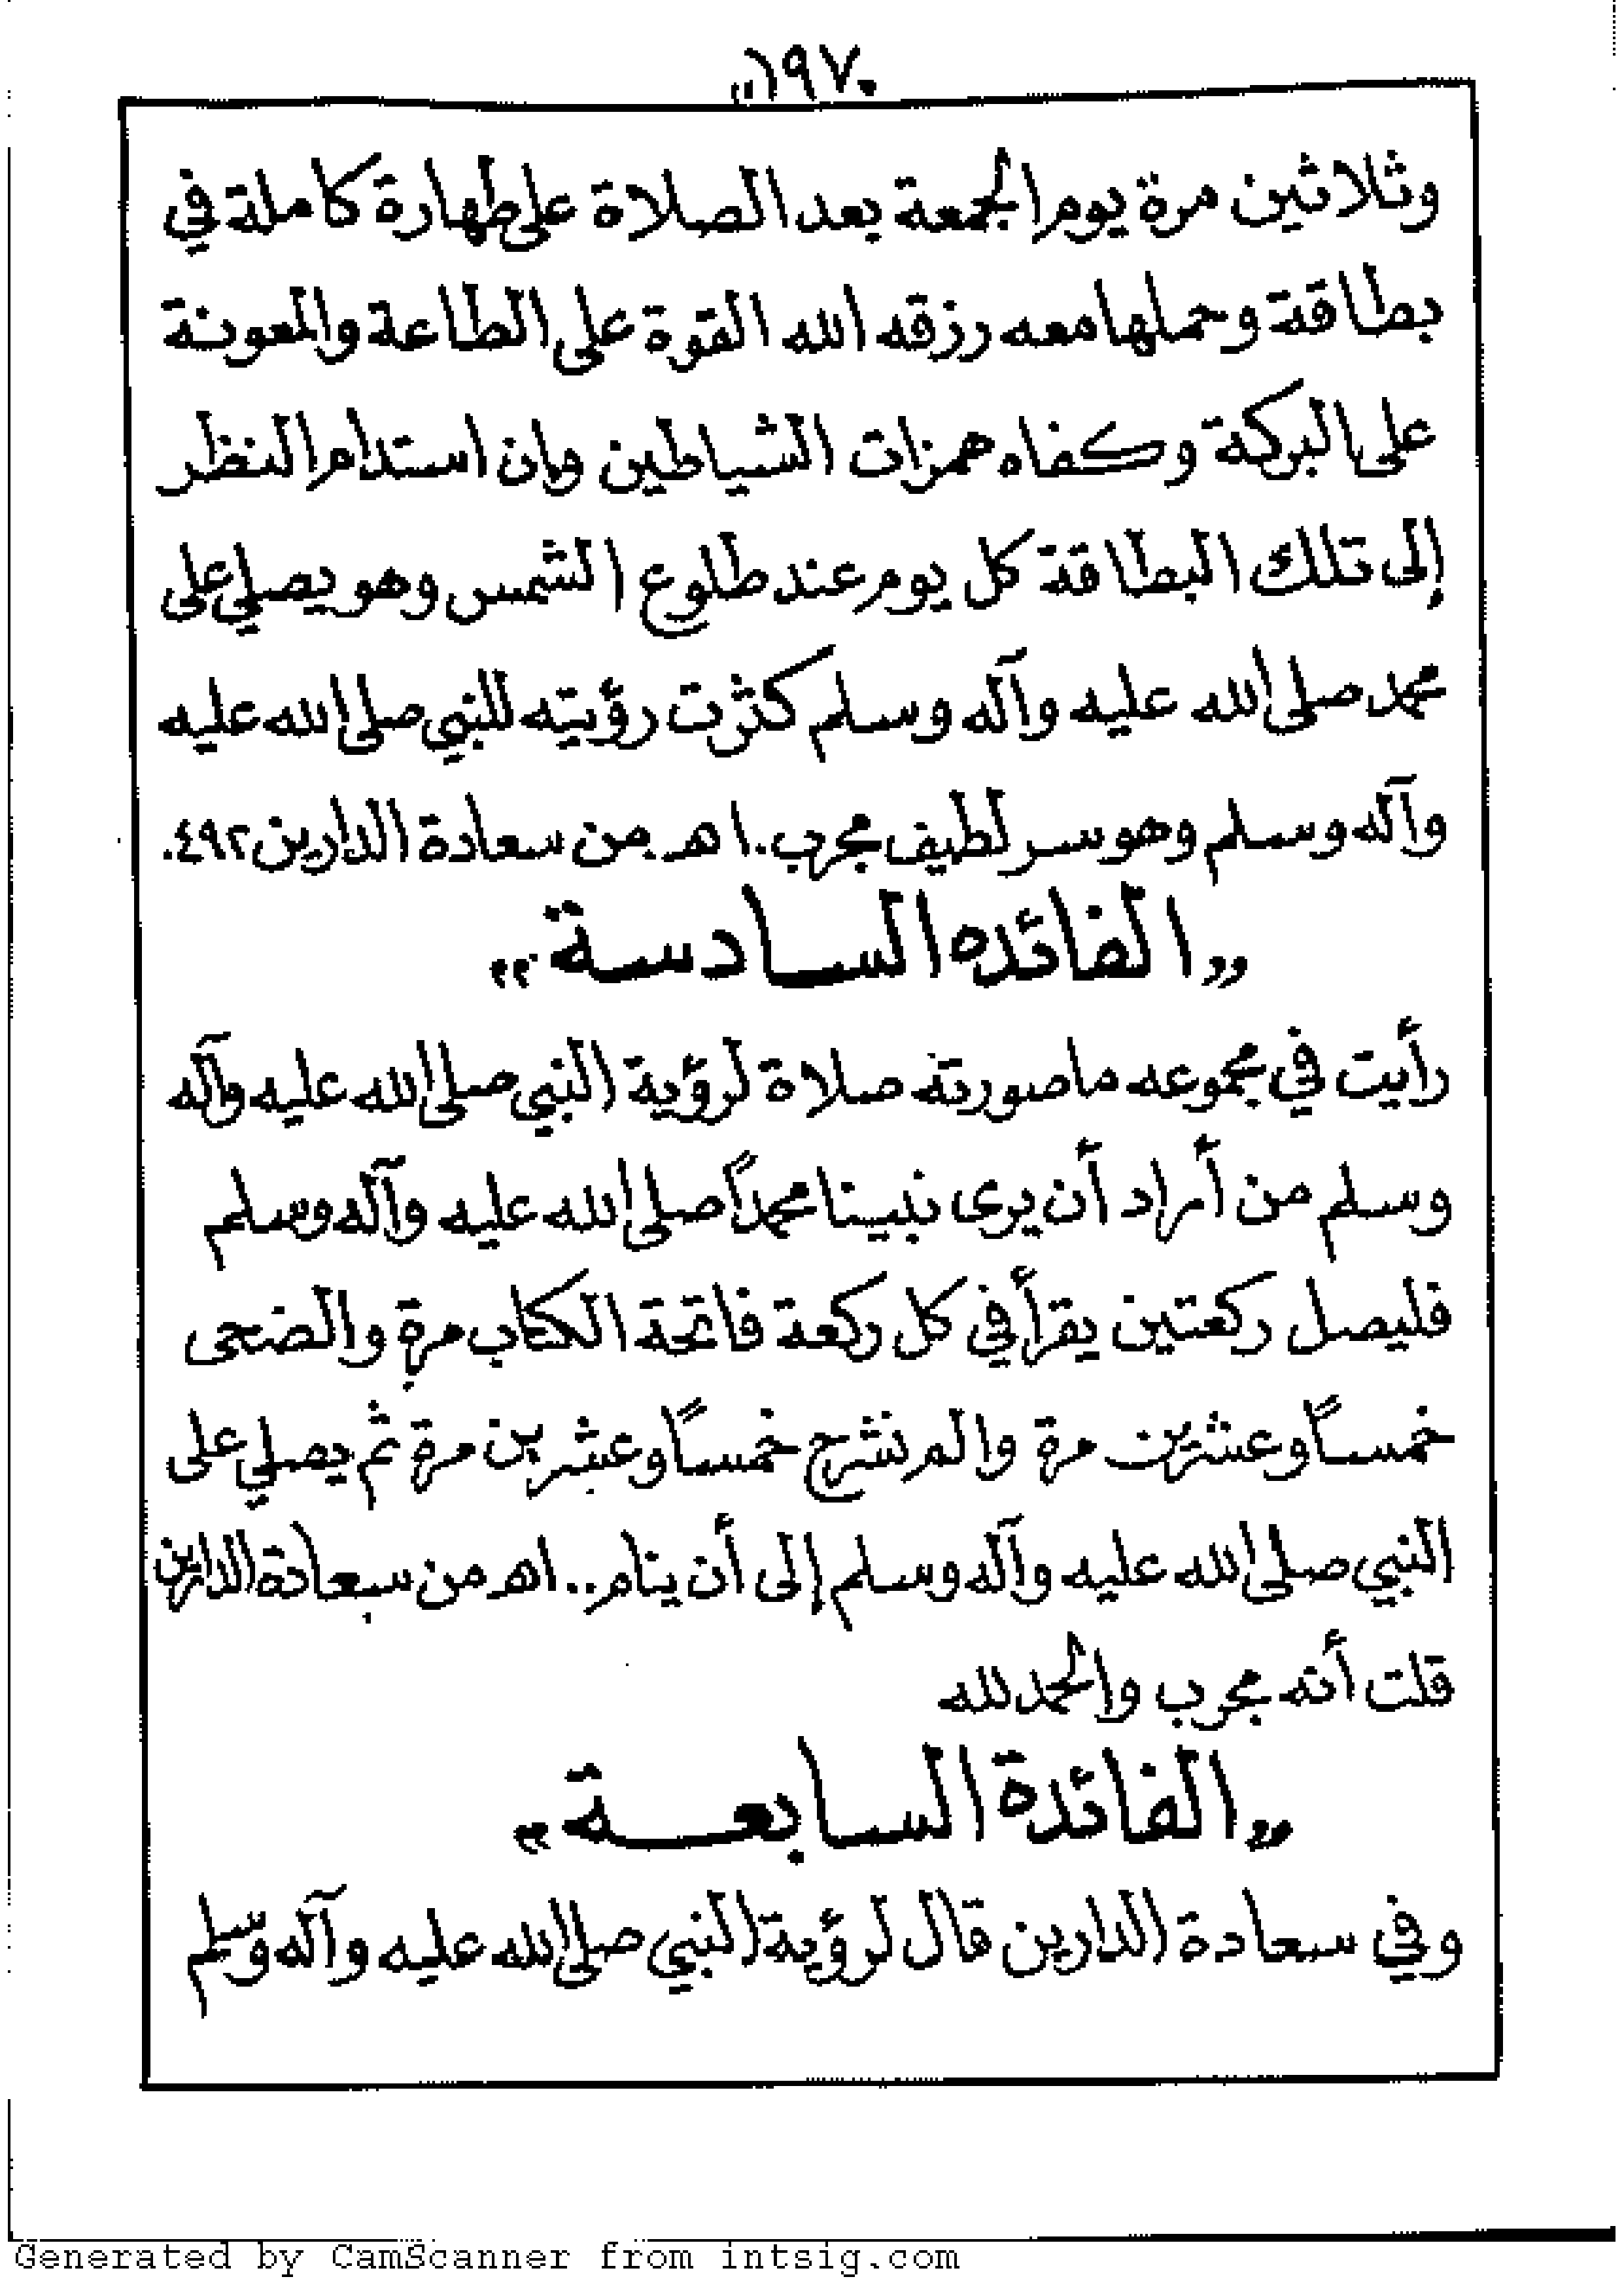 ١٩٧
وثلاثين مرة يوم الجمعة بعد الصلاة على طهارة كاملة في
بطاقة وحملها معه رزقه الله القوة على الطاعة والمعونة
على البركة وكفاه همزات الشياطين وإن استدام النظر
إلى تلك البطاقة كل يوم عند طلوع الشمس وهو يصلي على
محمد صلى الله عليه وآله وسلم كثرت رؤيته للنبي صلى الله عليه
وآله وسلم وهو سر لطيف مجرب . اهـ من سعادة الدارين ٤٩٢.
«الفائده السادسة»
رأيت في مجموعه ما صورته صلاة لرؤية النبي صلى الله عليه وآله
وسلم من أراد أن يرى نبينا محمداً صلى الله عليه وآله وسلم
فليصل ركعتين يقرأ في كل ركعة فاتحة الكتاب مرة والضحى
خمساً وعشرين مرة والم نشرح خمساً وعشرين مرة ثم يصلي على
النبي صلى الله عليه وآله وسلم إلى أن ينام .. اهـ من سعادة الدارين
قلت أنه مجرب والحمد لله
«الفائدة السابعة»
وفي سعادة الدارين قال لرؤية النبي صلى الله عليه وآله وسلم
Generated by CamScanner from intsig.com